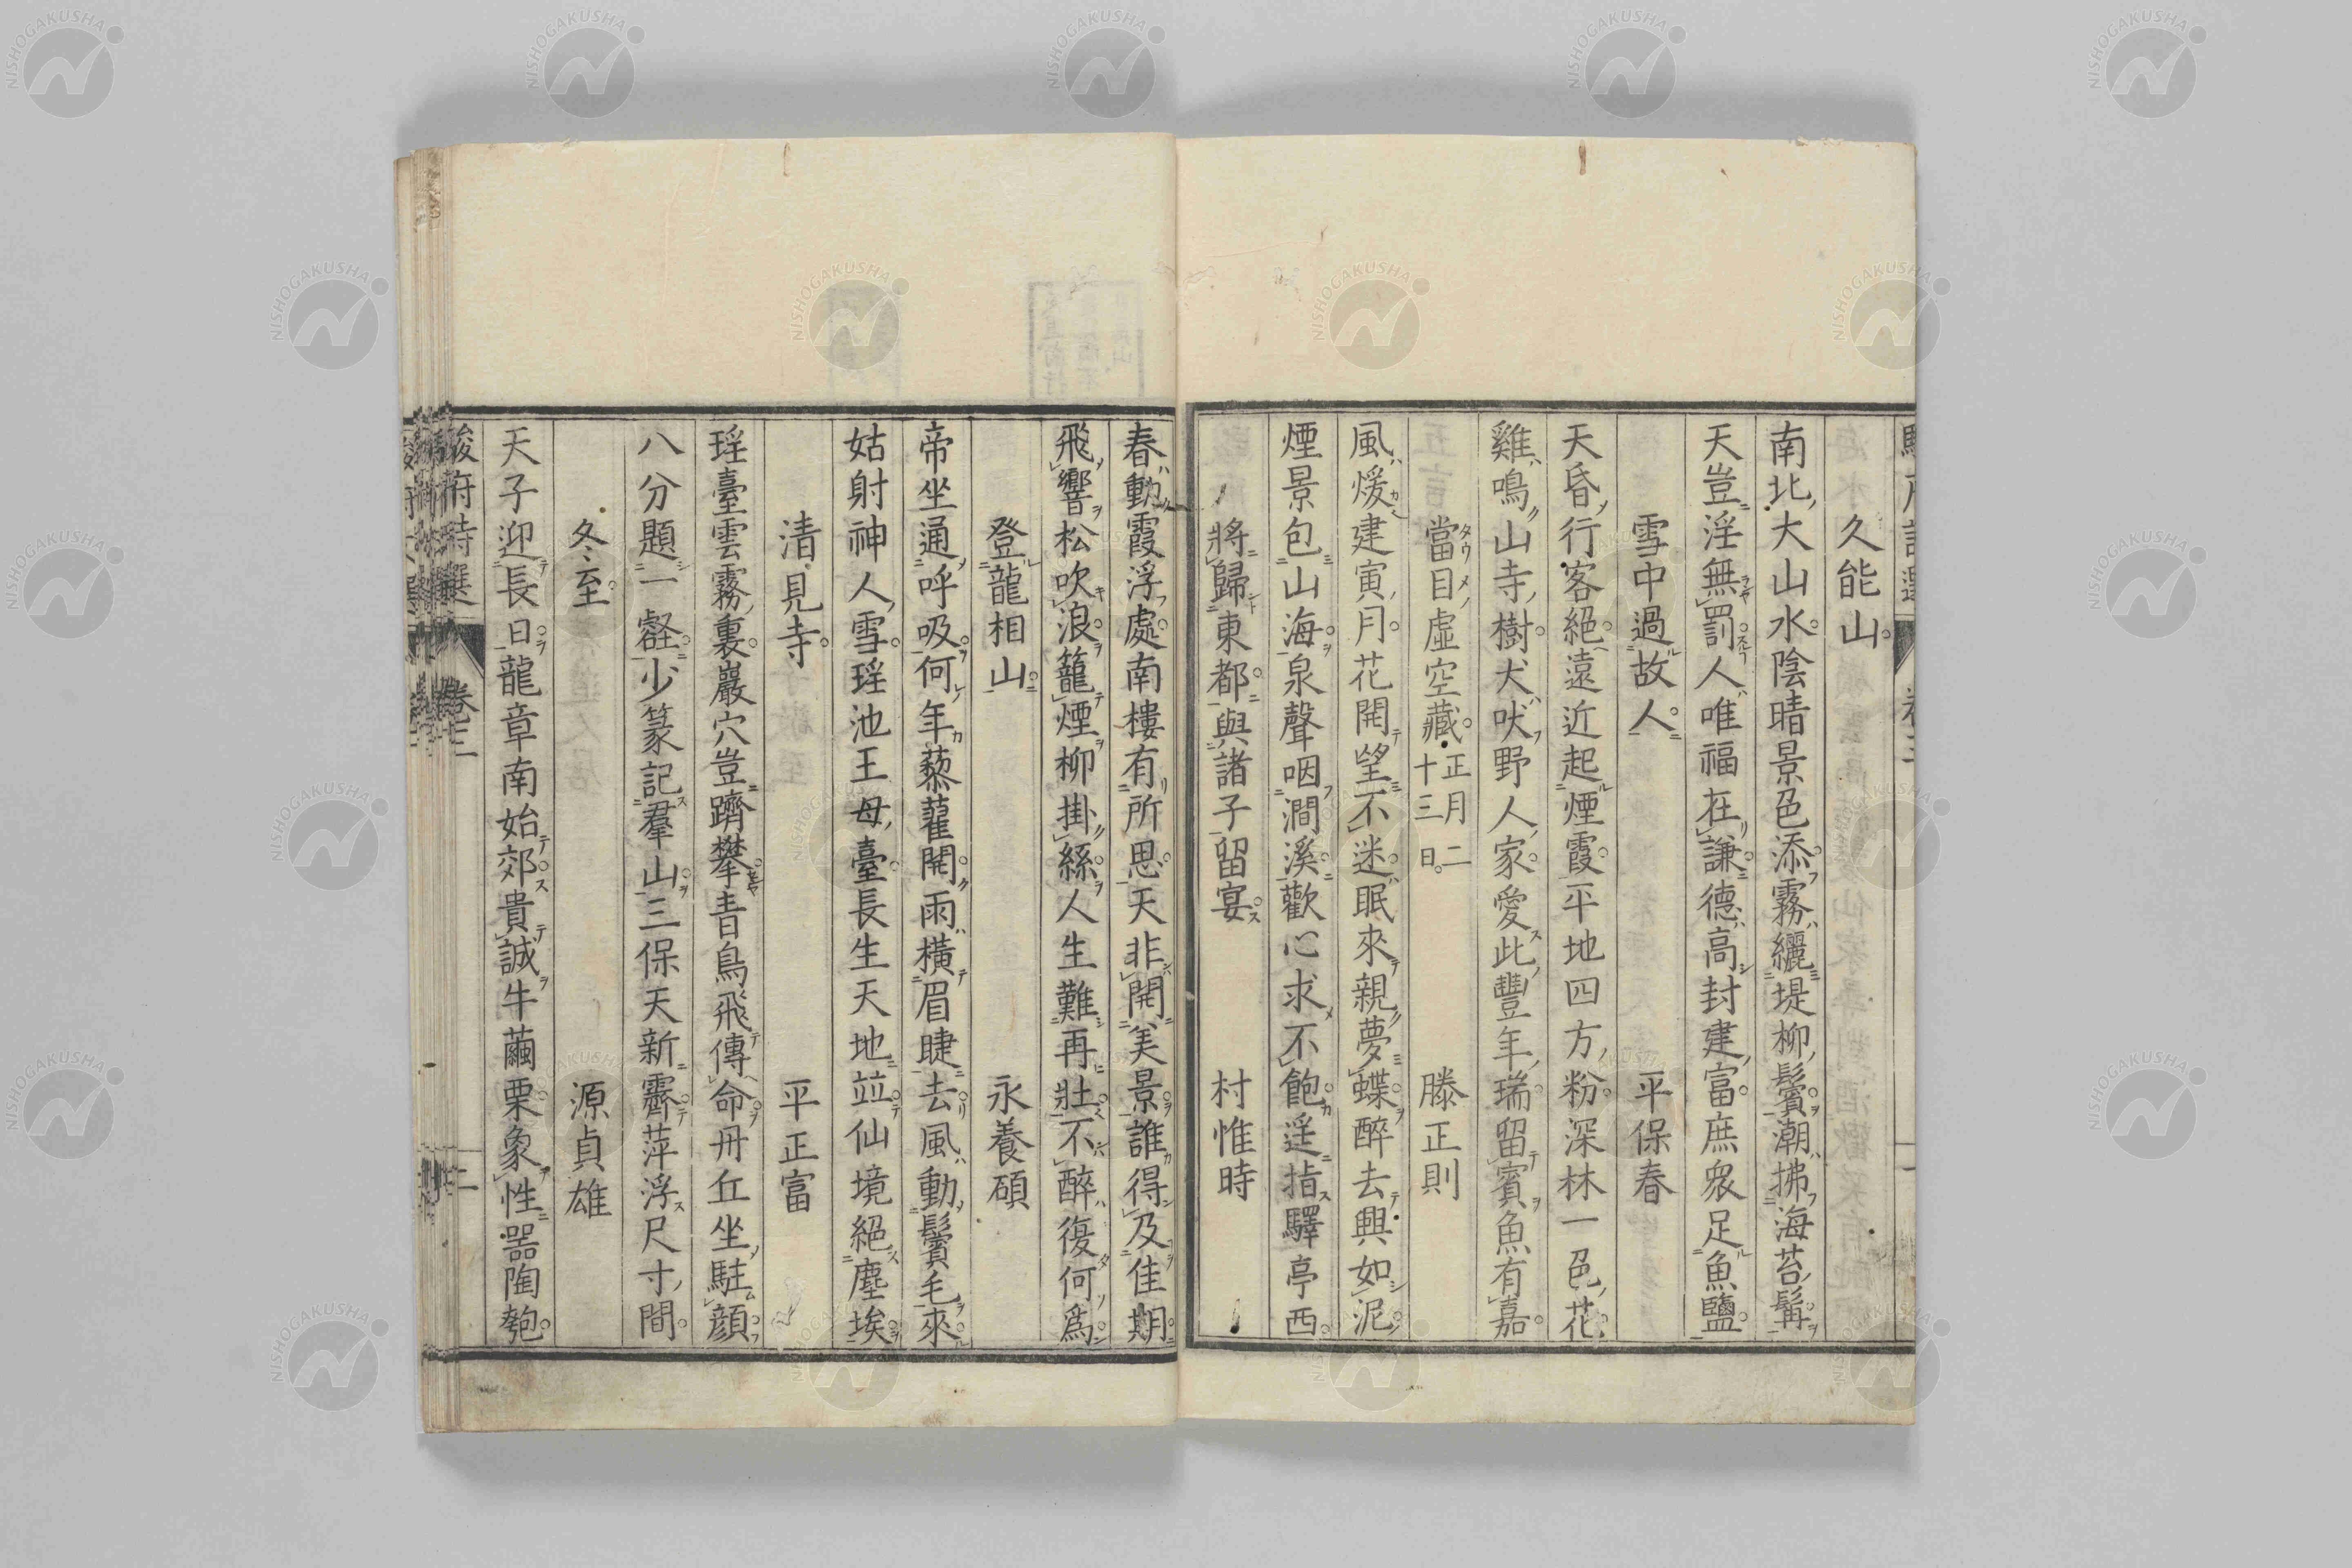 久能山
南北大山水陰晴景色添霧纚堤柳鬢潮拂海苔髯
天豈淫無罰人唯福在謙德高封建富庶衆足魚鹽
雪中過故人 平保春
天昏行客絕遠近起煙霞平地四方粉深林一色花
雞鳴山寺樹犬吠野人家愛此豐年瑞留賓魚有嘉
當目虛空藏 正月二十三日 滕正則
風煖建寅月花開望不迷眠來親夢蝶醉去興如泥
煙景包山海泉聲咽澗溪歡心求不飽遥指驛亭西
將歸東都與諸子留宴 村惟時
春動霞浮處南樓有所思天非開美景誰得及佳期
飛響松吹浪籠煙柳掛絲人生難再壯不醉復何爲
登龍相山 永養碩
帝坐通呼吸何年藜藋開雨橫眉睫去風動鬢毛來
姑射神人雪瑶池王母臺長生天地竝仙境絕塵埃
清見寺 平正富
瑶臺雲霧裏巖穴豈躋攀青鳥飛傳命丹丘坐駐顔
八分題一壑少篆記羣山三保天新霽萍浮尺寸間
冬至 源貞雄
天子迎長日龍章南始郊貴誠牛繭栗象性器陶匏
駿府詩選 卷三 二